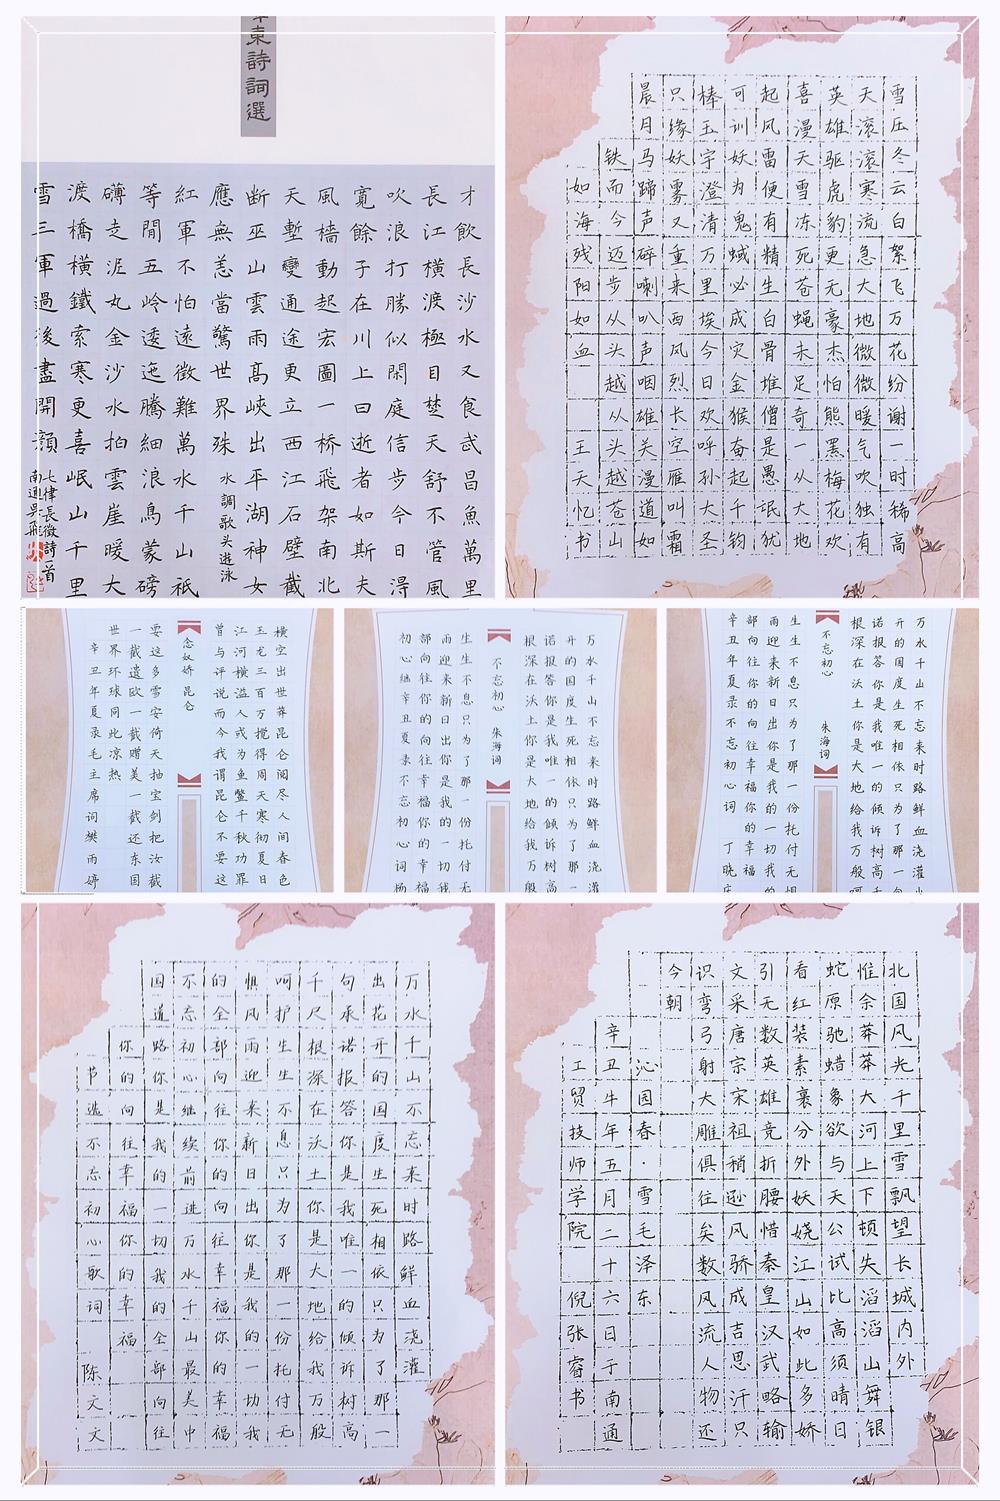 東詩詞選
才飲長沙水又食武昌魚萬里
長江橫渡極目楚天舒不管風
吹浪打勝似閑庭信步今日淂
寬餘子在川上曰逝者如斯夫
風檣動起宏圖一桥飛架南北
天塹變通途更立西江石壁截
断巫山雲雨髙峽出平湖神女
應無恙當驚世界殊 水調歌头遊泳
紅軍不怕遠徵難萬水千山祇
等閒五岭逶迤騰細浪烏蒙磅
礴走泥丸金沙水拍雲崖暖大
渡橋橫鐵索寒更喜岷山千里
雪三軍過後盡開顏 七律長徵詩一首
南通吳飛
雪压冬云白絮飞万花纷谢一时稀高
天滚滚寒流急大地微微暖气吹独有
英雄驱虎豹更无豪杰怕熊黑梅花欢
喜漫天雪冻死苍蝇未足奇一从大地
起风雷便有精生白骨堆僧是愚氓犹
可训妖为鬼蜮必成灾金猴奋起千钧
棒玉宇澄清万里埃今日欢呼孙大圣
只缘妖雾又重来西风烈长空雁叫霜
晨月马蹄声碎喇叭声咽雄关漫道如
铁而今迈步从头越从头越苍山
如海残阳如血 王天忆书
横空出世莽昆仑阅尽人间春色
玉龙三百万搅得周天寒彻夏日
江河横溢人或为鱼鳖千秋功罪
曾与评说而今我谓昆仑不要这
念奴娇昆仑
要这多雪安倚天抽宝剑把汝截
一截遗欧一截赠美一截还东国
世界环球同此凉热
辛丑年夏录毛主席词樊雨婷
万水千山不忘来时路鲜血浇灌
开的国度生死相依只为了那一
诺报答你是我唯一的倾诉树高
根深在沃土你是大地给我万般
不忘初心 朱海词
生生不息只为了那一份托付无
雨迎来新日出你是我的一切我
部向往你的向往幸福你的幸福
初心继辛丑夏录不忘初心词杨
万水千山不忘来时路鲜血浇灌
开的国度生死相依只为了那一
诺报答你是我唯一的倾诉树高
根深在沃土你是大地给我万般呵
不忘初心 朱海词
生生不息只为了那一份托付无惧
雨迎来新日出你是我的一切我的
部向往你的向往幸福你的幸福
辛丑年夏录不忘初心词 丁晓
万水千山不忘来时路鲜血浇灌
出花开的国度生死相依只为了那一
句承诺报答你是我唯一的倾诉树高
千尺根深在沃土你是大地给我万般
呵护生生不息只为了那一份托付无
惧风雨迎来新日出你是我的一切我
的全部向往你的向往幸福你的幸福
不忘初心继续前进万水千山最美中
国道路你是我的一切我的全部向往
你的向往幸福你的幸福
节选不忘初心歌词 陈文文
北国风光千里雪飘望长城内外
惟余莽莽大河上下顿失滔滔山舞银
蛇原驰蜡象欲与天公试比高须晴日
看红装素裹分外妖娆江山如此多娇
引无数英雄竞折腰惜秦皇汉武略输
文采唐宗宋祖稍逊风骄成吉思汗只
识弯弓射大雕俱往矣数风流人物还
今朝
沁园春·雪毛泽东
辛丑牛年五月二十六日于南通
工贸技师学院 倪张睿书